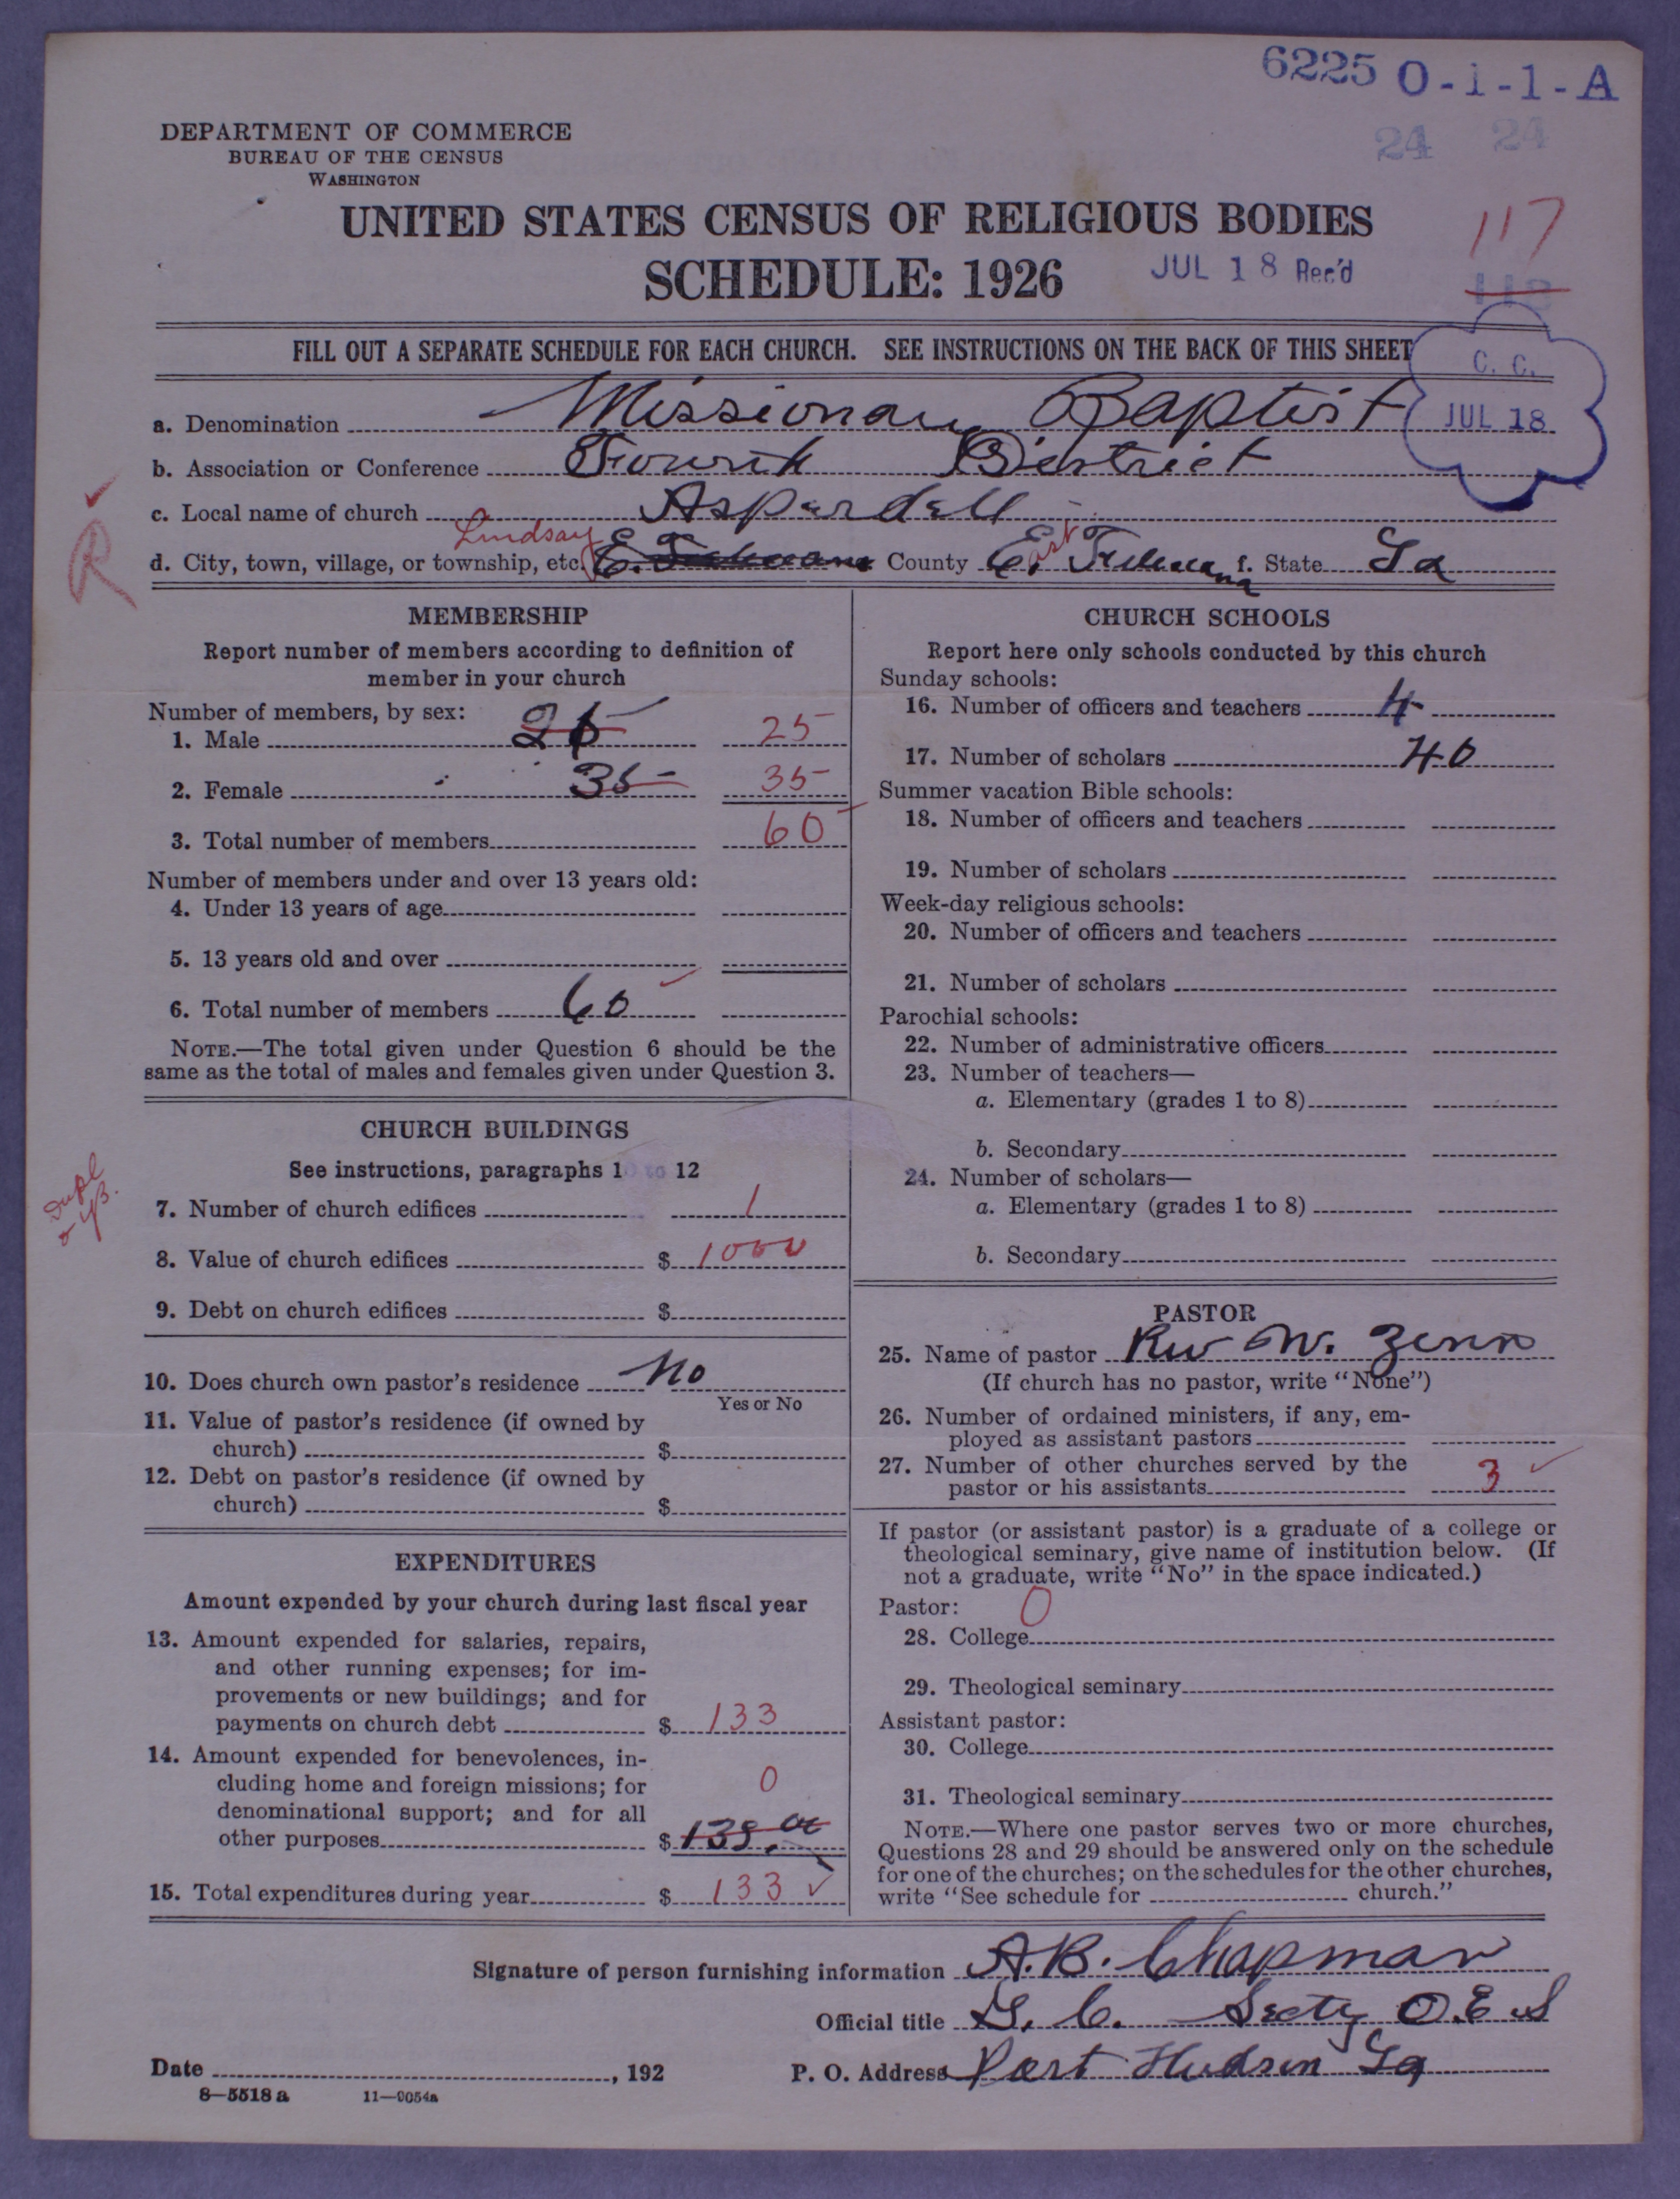 6225 O-1-1-A
24 24
DEPARTMENT OF COMMERCE
BUREAU OF THE CENSUS
WASHINGTON
UNITED STATES CENSUS OF RELIGIOUS BODIES
117
SCHEDULE: 1926 JUL 18 Rec'd
118
FILL OUT A SEPARATE SCHEDULE FOR EACH CHURCH. SEE INSTRUCTIONS ON THE BACK OF THIS SHEET
C. C.
JUL 18
a. Denomination Missionary Baptist
b. Association or Conference Fourth District
c. Local name of church Asperdell
R
Lindsay
d. City, town, village, or township, etc. County East Feliciana f. State La
MEMBERSHIP
Report number of members according to definition of
member in your church
Number of members, by sex:
1. Male 25
2. Female 35 35
3. Total number of members 60
Number of members under and over 13 years old:
4. Under 13 years of age
5. 13 years old and over
6. Total number of members 60
NOTE.—The total given under Question 6 should be the
same as the total of males and females given under Question 3.
CHURCH BUILDINGS
See instructions, paragraphs 10 to 12
Dupl
7. Number of church edifices 1
8. Value of church edifices $ 1000
9. Debt on church edifices $
10. Does church own pastor's residence No
Yes or No
11. Value of pastor's residence (if owned by
church) $
12. Debt on pastor's residence (if owned by
church) $
EXPENDITURES
Amount expended by your church during last fiscal year
13. Amount expended for salaries, repairs,
and other running expenses; for im-
provements or new buildings; and for
payments on church debt $ 133
14. Amount expended for benevolences, in-
cluding home and foreign missions; for 0
denominational support; and for all
other purposes $ 133.00
15. Total expenditures during year $ 133
CHURCH SCHOOLS
Report here only schools conducted by this church
Sunday schools:
16. Number of officers and teachers 4
17. Number of scholars 40
Summer vacation Bible schools:
18. Number of officers and teachers
19. Number of scholars
Week-day religious schools:
20. Number of officers and teachers
21. Number of scholars
Parochial schools:
22. Number of administrative officers
23. Number of teachers—
a. Elementary (grades 1 to 8)
b. Secondary
24. Number of scholars—
a. Elementary (grades 1 to 8)
b. Secondary
PASTOR
25. Name of pastor Rev W. Zenn
(If church has no pastor, write "None")
26. Number of ordained ministers, if any, em-
ployed as assistant pastors
27. Number of other churches served by the
pastor or his assistants 3
If pastor (or assistant pastor) is a graduate of a college or
theological seminary, give name of institution below. (If
not a graduate, write "No" in the space indicated.)
Pastor: 0
28. College
29. Theological seminary
Assistant pastor:
30. College
31. Theological seminary
NOTE.—Where one pastor serves two or more churches,
Questions 28 and 29 should be answered only on the schedule
for one of the churches; on the schedules for the other churches,
write "See schedule for church."
Signature of person furnishing information A.B. Chapman
Official title G. C. Secty O.E.S
Date , 192 P. O. Address Port Hudson La
8—5518a 11—9054a